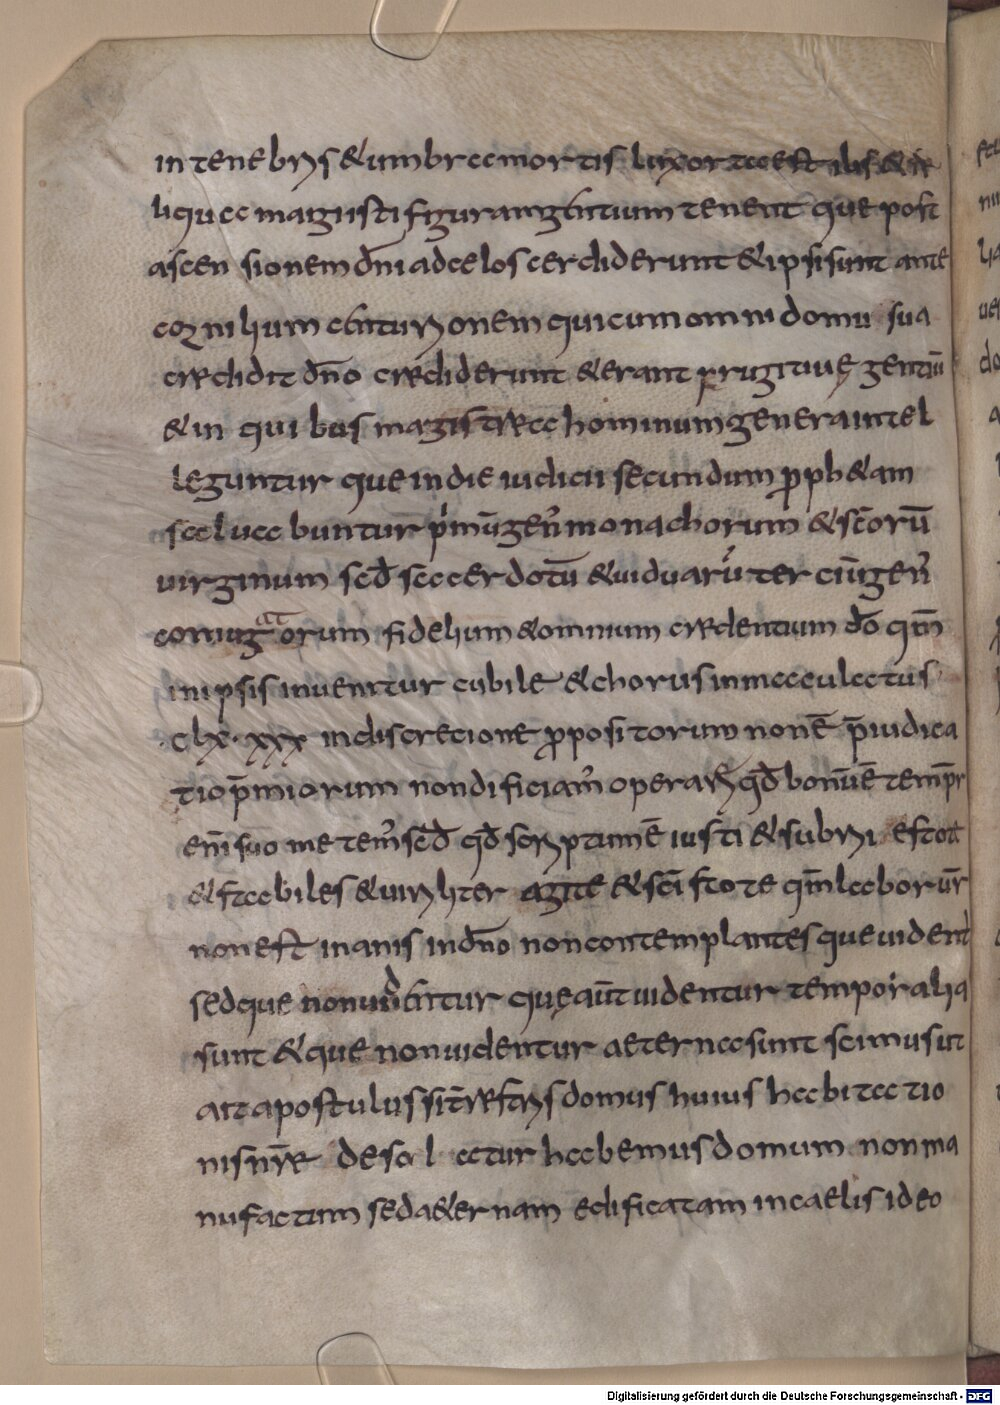 in tenebris & umbra mortis lux orta est illis & re
liqua magis ti figuram gentium tenent que post
ascen sionem dn̄i ad celos crediderunt & ipsi sunt ante
cornilium centurionem qui cum omni domu sua
credidit dn̄o crediderunt & erant primitiuę gentiū
& in qui bus magistrea hominum genera intel
leguntur que in die iudicii secundum proph&am
salua buntur p'mū gen' monachorum & sc̄orū
uirginum sed̄ sacer dotū & uiduarū ter ciū gen'
coniugatorum fidelium & omnium credentium dō qm̄
in ipsis inuenitur cubile & chorus in mea eulectus
clx · xxx in discrecione propositorum non ē p̄iudica
tio p̄miorum non dificiam' operari qd̄ bonū ē temp̄r
eni suo me tem' sed̄ qd̄ scriptum ē iusti & subrii estote
& stabiles & uiriliter agite & sc̄i stote qm̄ labor ur̄
non est inanis in dn̄o non contemplantes que uident'
sed que non uidentur quę aūt uidentur temporalia
sunt & que non uidentur aeterna sunt scimus ut
ait apostulus si t̄restris domus huius habitatio
nis nr̄e desol uatur habemus domum non ma
nufactum sed a&ernam edificatam in caelis ideo
Digitalisierung gefördert durch die Deutsche Forschungsgemeinschaft - DFG